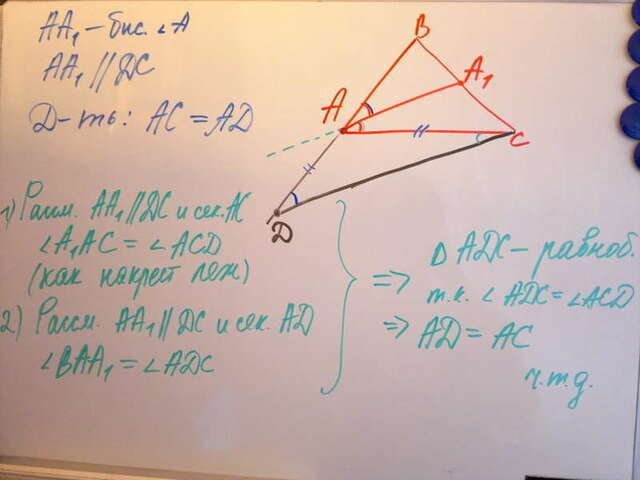 AA₁ – бис. ∠A
AA₁ // DC
Д-ть: AC = AD
B
A₁
A
C
D
1) Рассм. AA₁ // DC и сек. AC
∠A₁AC = ∠ACD
(как накрест леж)
2) Рассм. AA₁ // DC и сек. AD
∠BAA₁ = ∠ADC
=> Δ ADC – равноб.
т.к. ∠ADC = ∠ACD
=> AD = AC
ч.т.д.